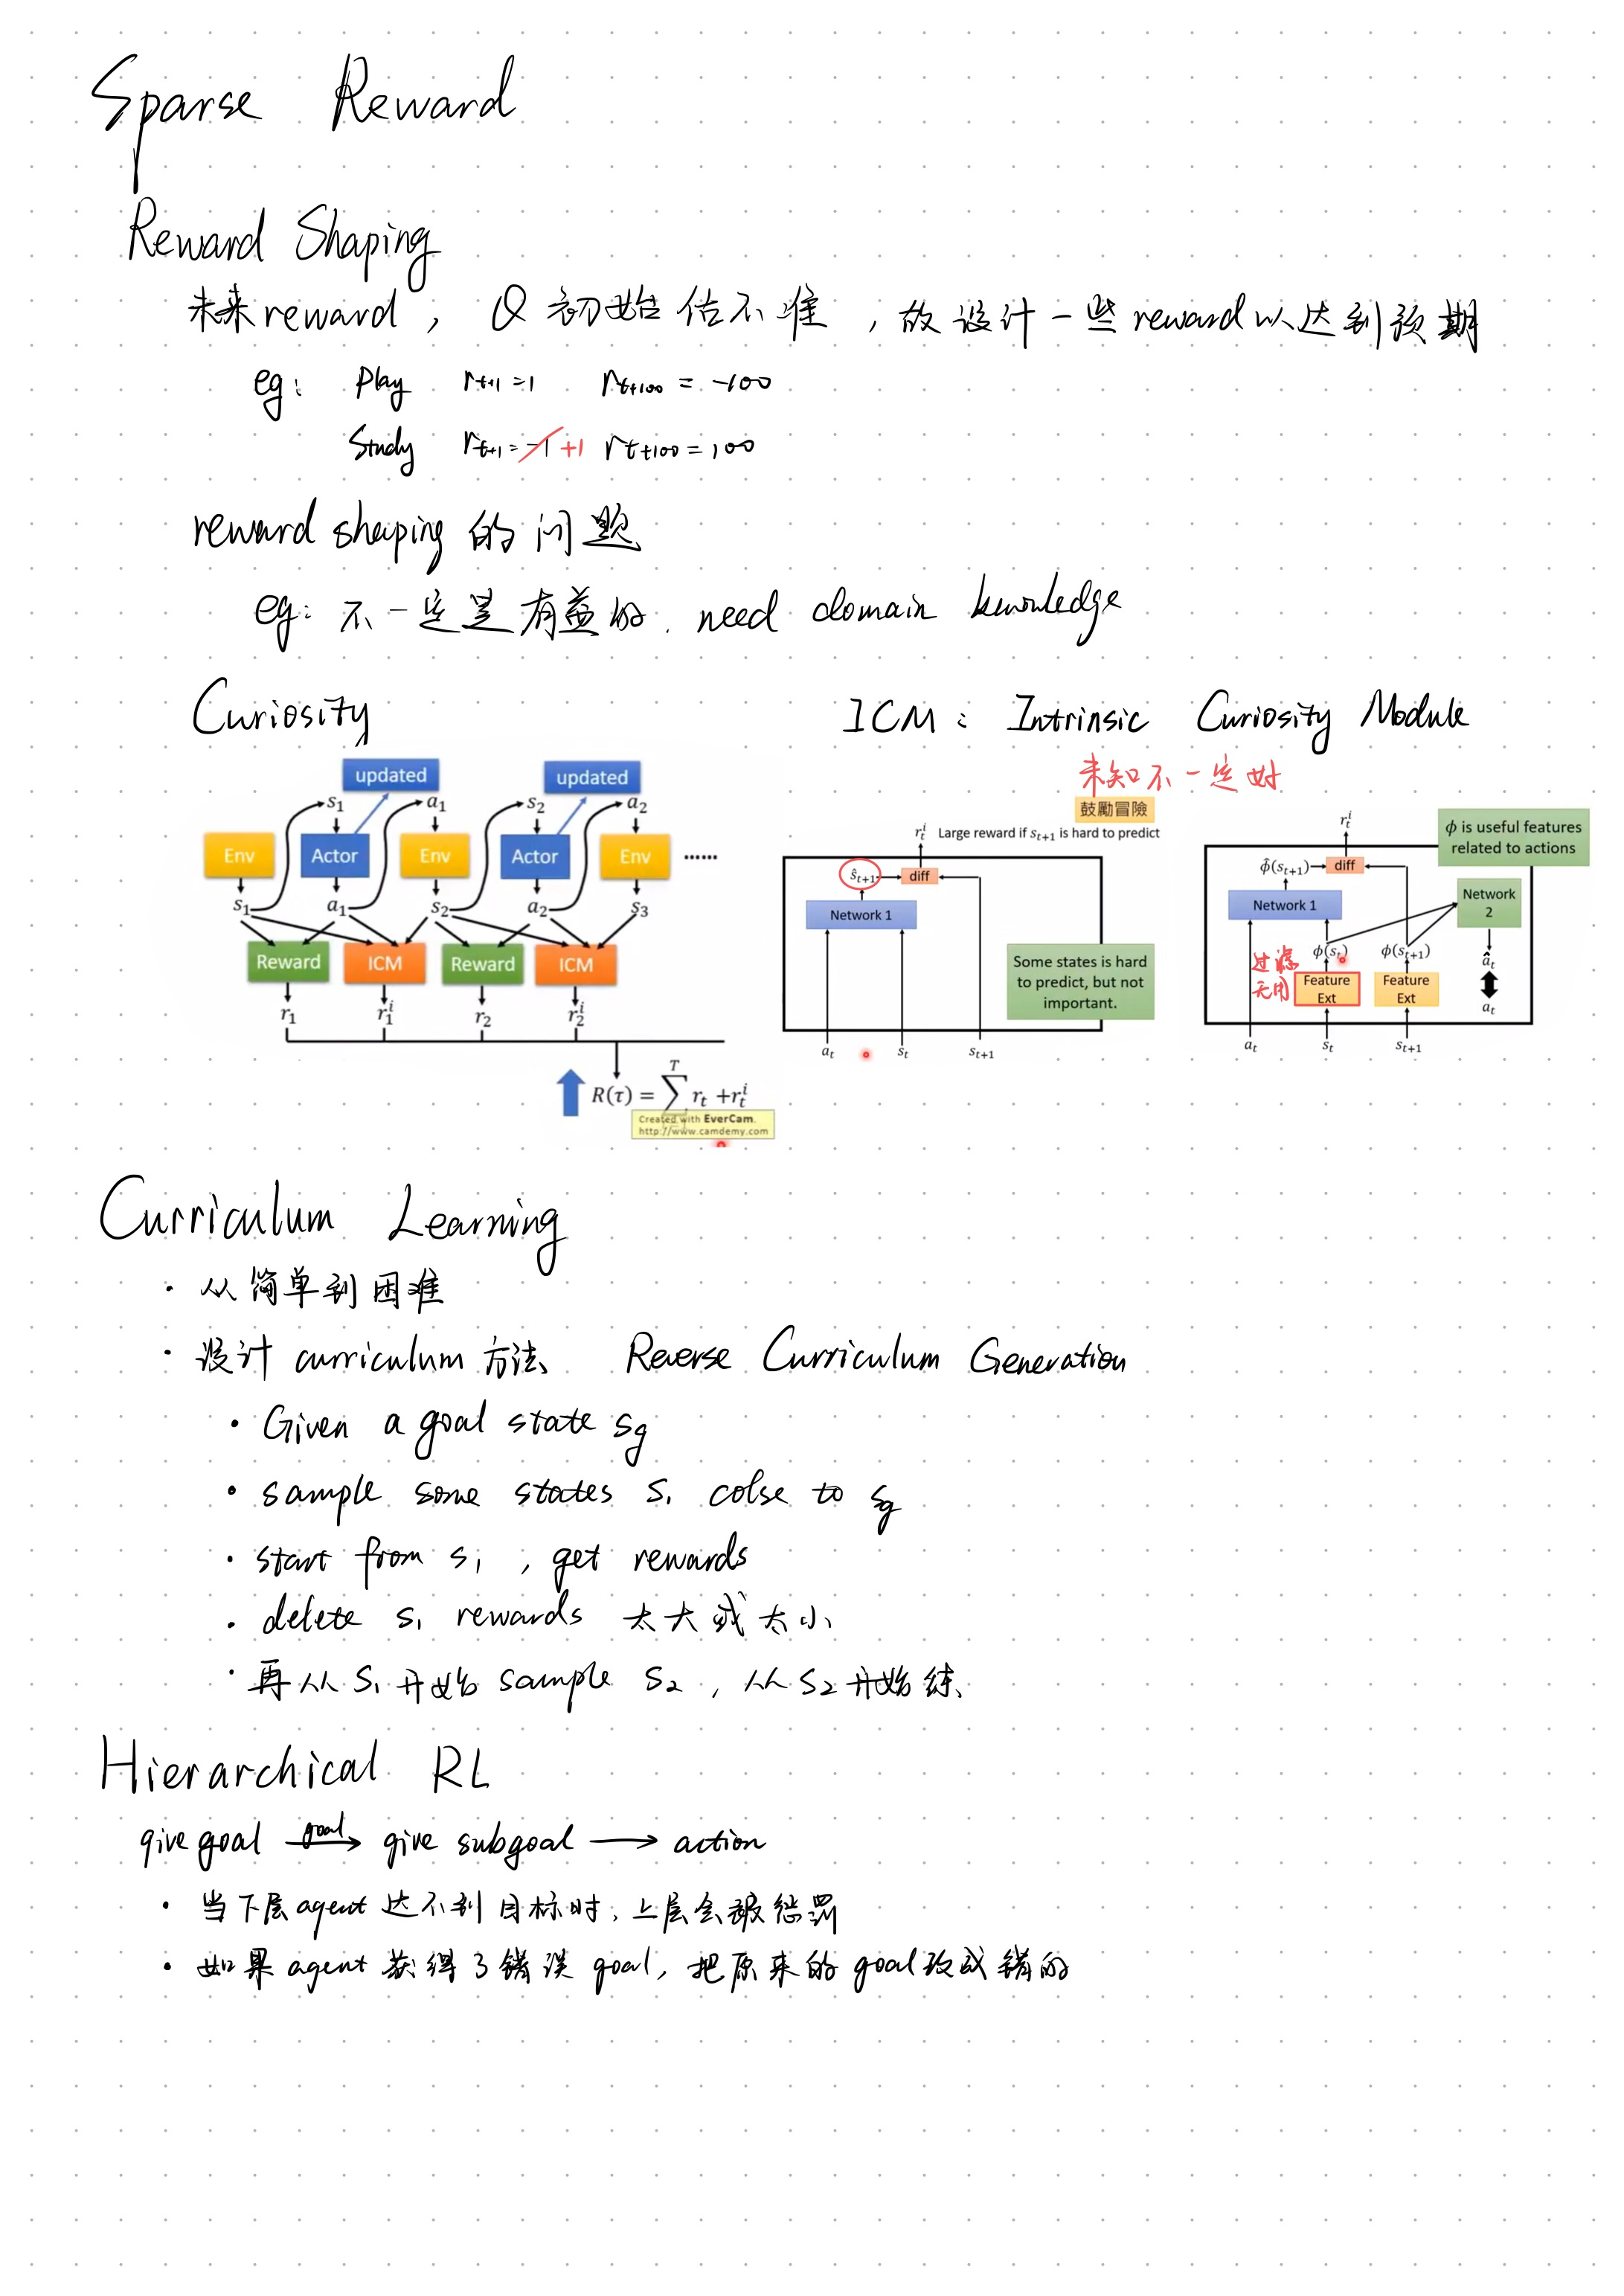 Sparse Reward
Reward Shaping
未来reward, Q初始估不准, 故设计一些reward以达到预期
eg: Play r_{t+1}=1 r_{t+100}=-100
Study r_{t+1}=-1 +1 r_{t+100}=100
reward shaping 的问题
eg: 不一定是有益的. need domain knowledge
Curiosity
ICM: Intrinsic Curiosity Module
未知不一定好
updated updated
s1 a1 s2 a2
Env Actor Env Actor Env ......
s1 a1 s2 a2 s3
Reward ICM Reward ICM
r1 r1^i r2 r2^i
R(τ) = ∑ r_t + r_t^i
T
Created with EverCam.
http://www.camdemy.com
鼓勵冒險
r_t^i Large reward if s_{t+1} is hard to predict
ŝ_{t+1} diff
Network 1
Some states is hard
to predict, but not
important.
a_t s_t s_{t+1}
r_t^i
ϕ is useful features
related to actions
ϕ̂(s_{t+1}) diff
Network 1
Network
2
ϕ(s_t) ϕ(s_{t+1})
â_t
过滤
无用
Feature
Ext
Feature
Ext
a_t
a_t s_t s_{t+1}
Curriculum Learning
· 从简单到困难
· 设计 curriculum 方法 Reverse Curriculum Generation
· Given a goal state sg
· sample some states s1 colse to sg
· start from s1, get rewards
· delete s1 rewards 太大或太小
· 再从 s1 开始 sample s2, 从 s2 开始练
Hierarchical RL
give goal goal→ give subgoal → action
· 当下层agent 达不到目标时, 上层会被惩罚
· 如果 agent 获得了错误 goal, 把原来的 goal改成错的